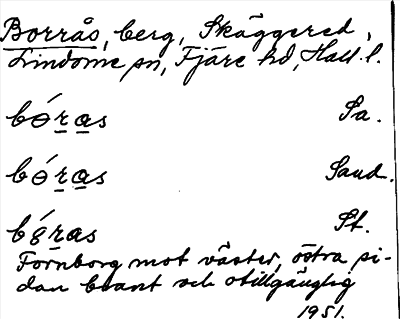 Borrås, berg, Skäggered,
Lindome sn, Fjäre hd, Hall. l.
bóras Sa.
bóras Sand.
bóras St.
Fornborg mot väster, östra si-
dan brant och otillgänglig
1951.